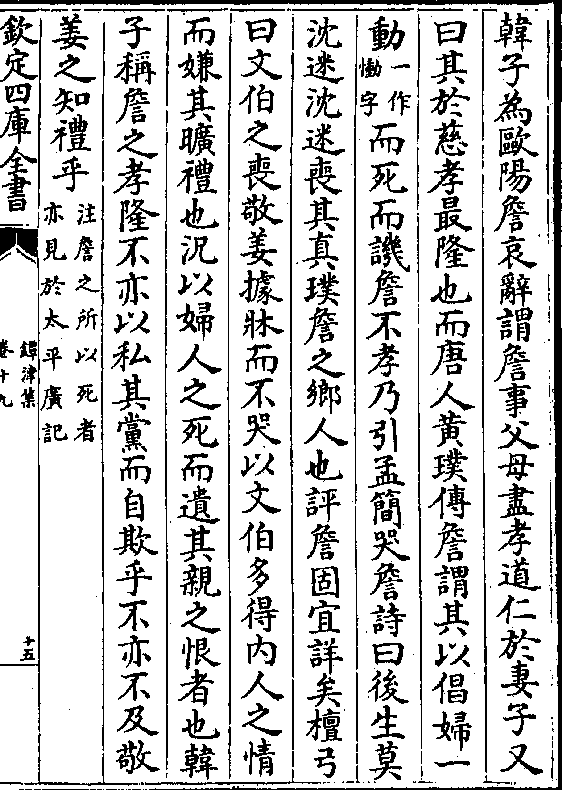 韓子為歐陽詹哀辭謂詹事父母盡孝道仁於妻子又
曰其於慈孝最隆也而唐人黄璞傳詹謂其以倡婦一
動一作慟字而死而譏詹不孝乃引孟簡哭詹詩曰後生莫
沈迷沈迷喪其真璞詹之鄉人也評詹固宜詳矣檀弓
曰文伯之喪敬姜據牀而不哭以文伯多得内人之情
而嫌其曠禮也況以婦人之死而遺其親之恨者也韓
子稱詹之孝隆不亦以私其黨而自欺乎不亦不及敬
姜之知禮乎注詹之所以死者亦見於太平廣記
欽定四庫全書
鐔津集
卷十九
十五